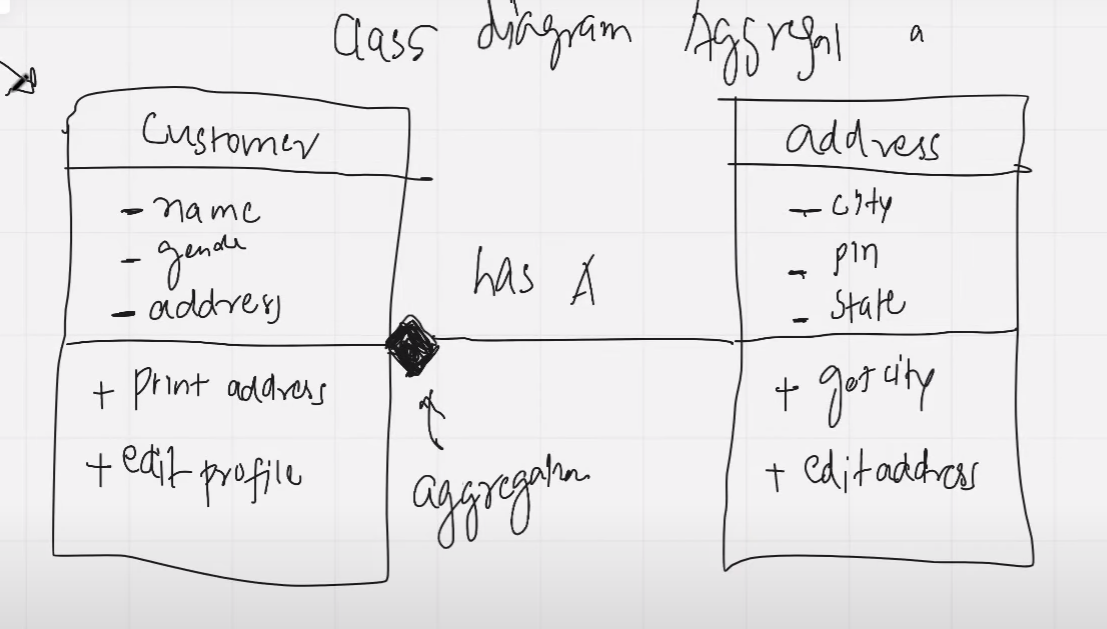 Class diagram Aggregat a
Customer
- name
- gende
- address
+ print address
+ edit profile
has A
aggregation
address
- city
- pin
- state
+ get city
+ edit address